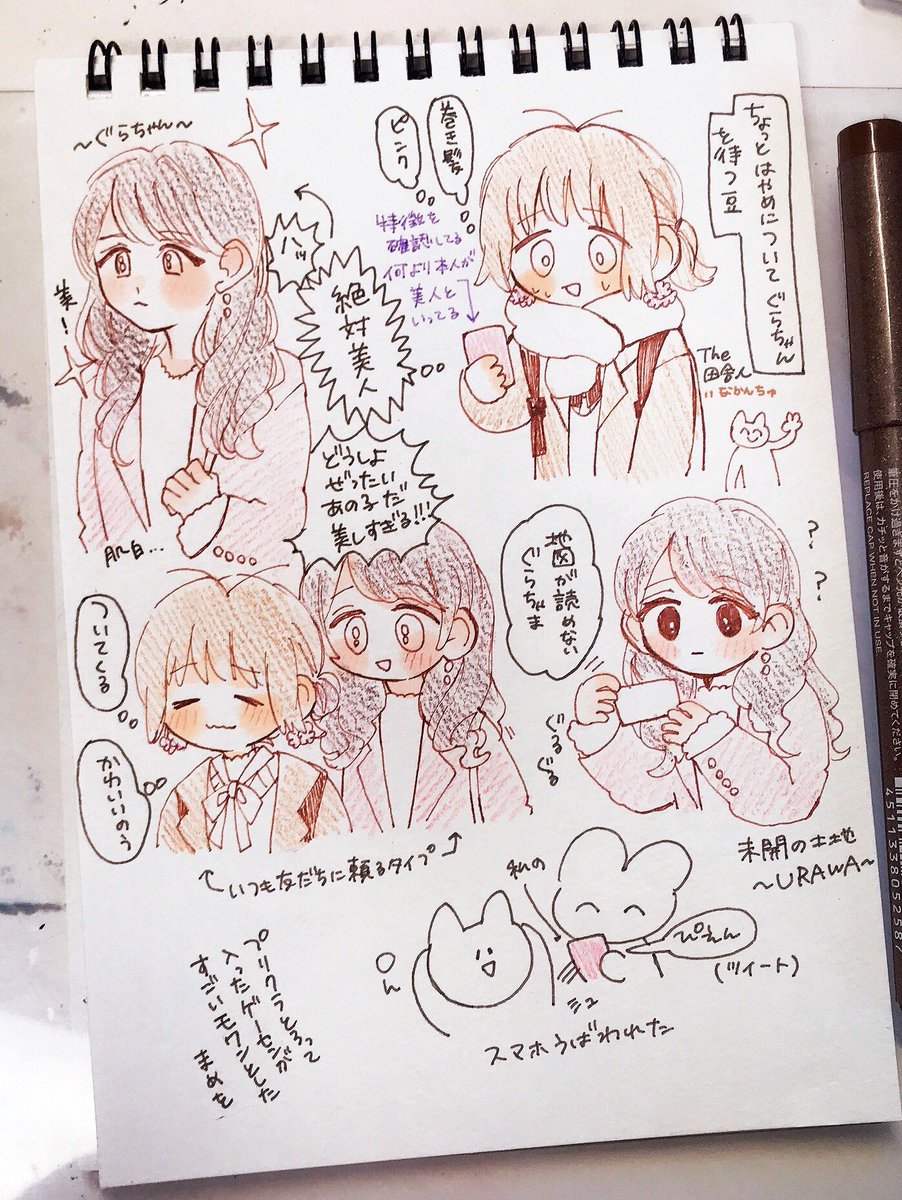 ちょっとはやめについてぐらちゃん
を待つ豆
巻き髪
ピンク
特徴を
確認してる
何より本人が
美人と
いってる
The
田舎人
いなかんちゅ
〜ぐらちゃん〜
美!
ハッ
絶対美人
肌白…
どうしよ
ぜったい
あの子だ
美しすぎる!!!
地図が読めない
ぐらちゃま
?
?
ぐるぐる
未開の土地
〜URAWA〜
ついてくる
かわいいのう
いつも友だちに頼るタイプ
私の
ぴえん
(ツイート)
スマホうばわれた
プリクラとろって
入ったゲーセンが
すごいモワンとした
まめを
使用後は、カチッと音がするまでキャップを確実に閉めてください。
REPLACE CAP WHEN NOT IN USE.